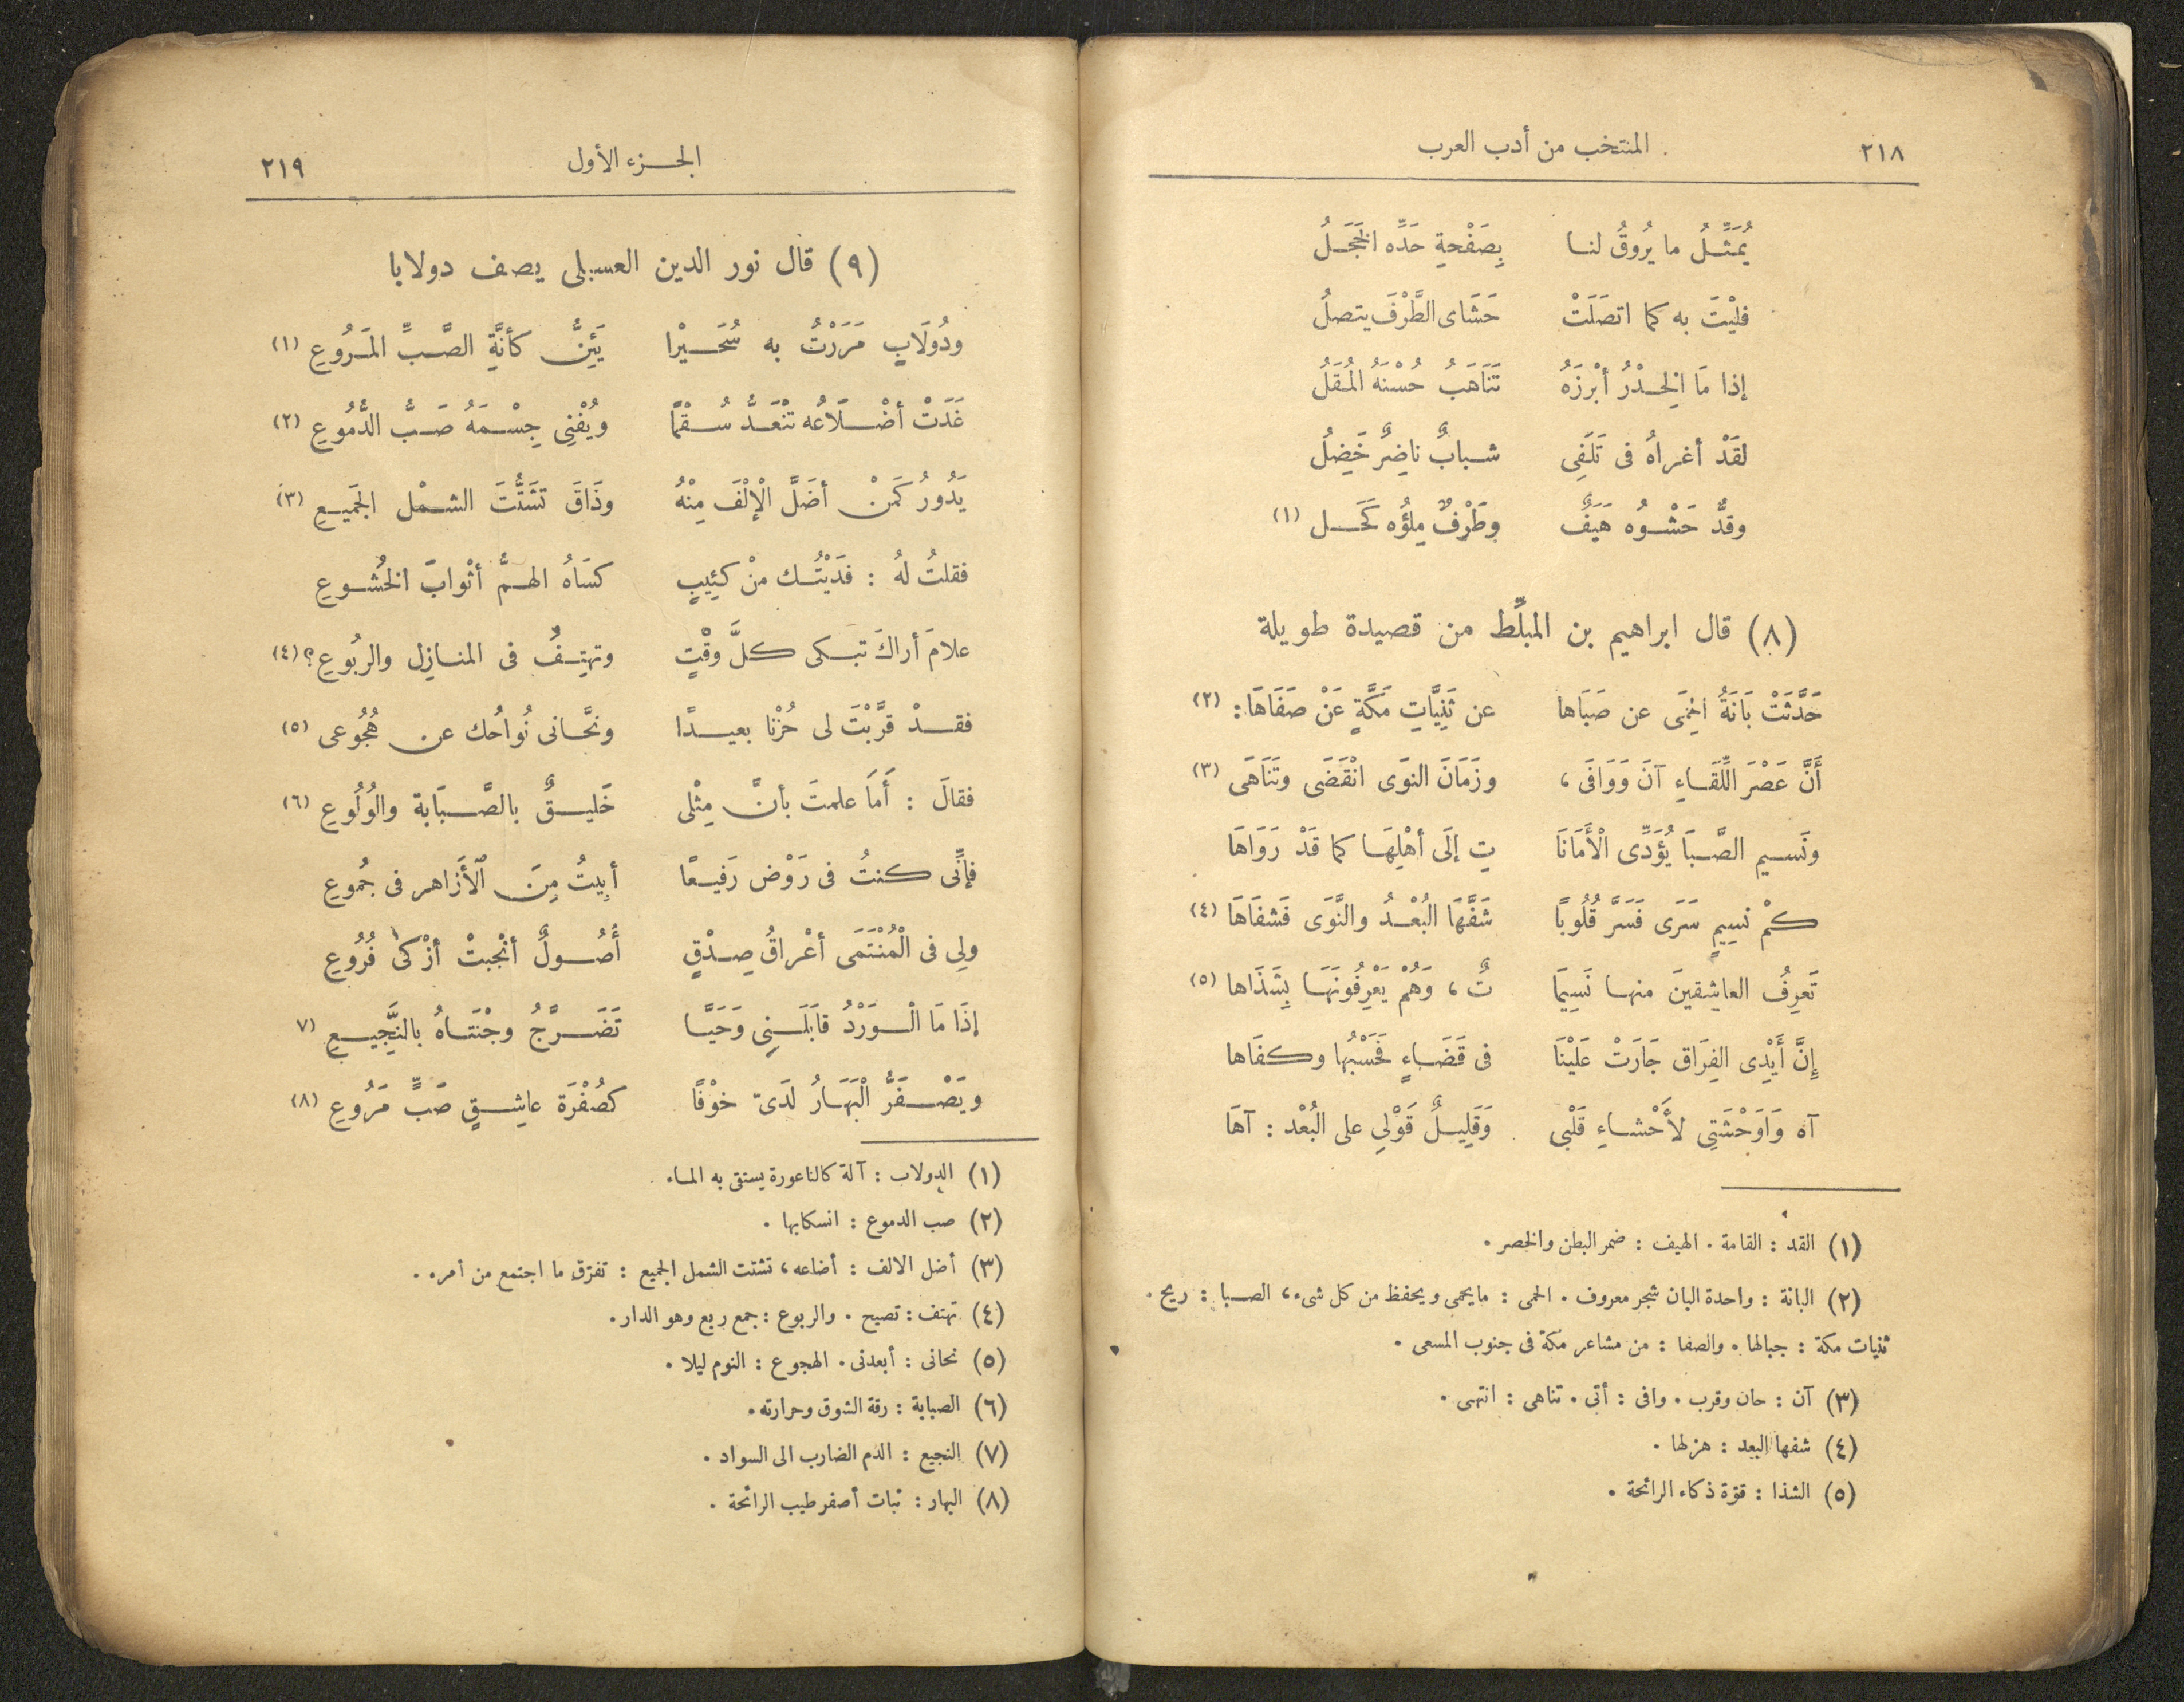 ٢١٨ المنتخب من أدب العرب
يُمَثَّلُ ما يُروقُ لنا بِصَفْحةِ خَدِّه الخَجَلُ
فليْتَ به كما اتصَلَتْ حَشَاى الطَّرْفَ يتصلُ
إذا مَا الخِدْرُ أبْرزَهُ تَنَاهَبُ حُسْنَهُ المُقَلُ
لقَدْ أغراهُ فى تَلَفِى شبابٌ ناضِرٌ خَضِلُ
وقدٌّ حَشْوُه هَيَفٌ وطَرْفٌ مِلؤُه كَحَل (١)
(٨) قال ابراهيم بن المبلِّط من قصيدة طويلة
حَدَّثَتْ بَانَةُ الحِمَى عن صَبَاها عن ثَنِيَّاتِ مَكَّةٍ عَنْ صَفَاهَا: (٢)
أَنَّ عَصْرَ اللِّقَاءِ آنَ وَوَافَى ، وزَمَانَ النوَى انْقَضَى وتَنَاهَى (٣)
ونَسيم الصَّبَا يُؤَدِّى الْأَمَانَا تِ إلَى أهْلِهَا كما قَدْ رَوَاهَا
كمْ نسِيمٍ سَرَى فَسَرَّ قُلُوبًا شَفَّهَا البُعْدُ والنَّوَى فَشفَاهَا (٤)
تَعرِفُ العاشِقينَ منها نَسِيمَا تٌ ، وَهُمْ يَعْرِفُونَهَا بِشَذَاها (٥)
إِنَّ أَيْدِى الفِرَاق جَارَتْ عَلَيْنَا فى قَضَاءٍ فَحَسْبُها وكفَاها
آه وَاوَحْشَتِى لأَحْشاءِ قَلْبى وَقَلِيلٌ قَوْلِى على البُعْد : آهَا
(١) القد : القامة . الهيف : ضمر البطن والخصر .
(٢) البانة : واحدة البان شجر معروف . الحمى : ما يحمى ويحفظ من كل شىء ، الصبا : ريح .
ثنيات مكة : جبالها . والصفا : من مشاعر مكة فى جنوب المسعى .
(٣) آن : حان وقرب . وافى : أتى . تناهى : انتهى .
(٤) شفها البعد : هزلها .
(٥) الشذا : قوّة ذكاء الرائحة .
الجزء الأول ٢١٩
(٩) قال نور الدين العسيلى يصف دولابا
ودُولَابٍ مَرَرْتُ به سُحَيْرا يَئِنُّ كأنَّةِ الصَّبِّ المَرُوعِ (١)
غَدَتْ أضْلَاعُه تَنْعَدُّ سُقْمًا ويُفْنِى جِسْمَهُ صَبُّ الدُّمُوعِ (٢)
يَدُورُ كَمَنْ أضَلَّ الْإلْفَ مِنْهُ وذَاقَ تشَتُّتَ الشمْل الجَميعِ (٣)
فقلتُ لهُ : فدَيْتُك منْ كئِيبٍ كسَاهُ الهمُّ أثْوابَ الخُشوعِ
علامَ أراكَ تبكى كلَّ وقْتٍ وتهتِفُ فى المنازِل والربُوعِ ؟ (٤)
فقدْ قرَّبْتَ لى حُزْنا بعيدًا ونحَّانى نُواحُك عن هُجُوعى (٥)
فقالَ : أمَا علمتَ بأنَّ مِثْلى خَليقٌ بالصَّبَابة والوُلُوعِ (٦)
فإنِّى كنتُ فى رَوْض رَفيعًا أبِيتُ مِنَ ٱلأَزَاهر فى جُموعِ
ولِى فى الْمُنْتَمَى أعْراقُ صِدْقٍ أُصُولٌ أنْجبتْ أزْكىٰ فُرُوعِ
إذَا مَا الْوَرْدُ قابَلَنِى وَحَيَّا تَضَرَّجُ وجْنَتَاهُ بالنَّجِيعِ (٧
ويَصْفَرُّ الْبَهَارُ لَدَىّ خوْفًا كصُفْرَة عاشِقٍ صَبٍّ مَرُوعِ (٨)
(١) الدولاب : آلة كالناعورة يستقى به الماء.
(٢) صب الدموع : انسكابها .
(٣) أضل الالف : أضاعه ، تشتت الشمل الجميع : تفرّق ما اجتمع من أمره .
(٤) تهتف : تصيح . والربوع : جمع ربع وهو الدار .
(٥) نحانى : أبعدنى . الهجوع : النوم ليلا .
(٦) الصبابة : رقة الشوق وحرارته .
(٧) النجيع : الدم الضارب الى السواد .
(٨) البهار : نبات أصفر طيب الرائحة .